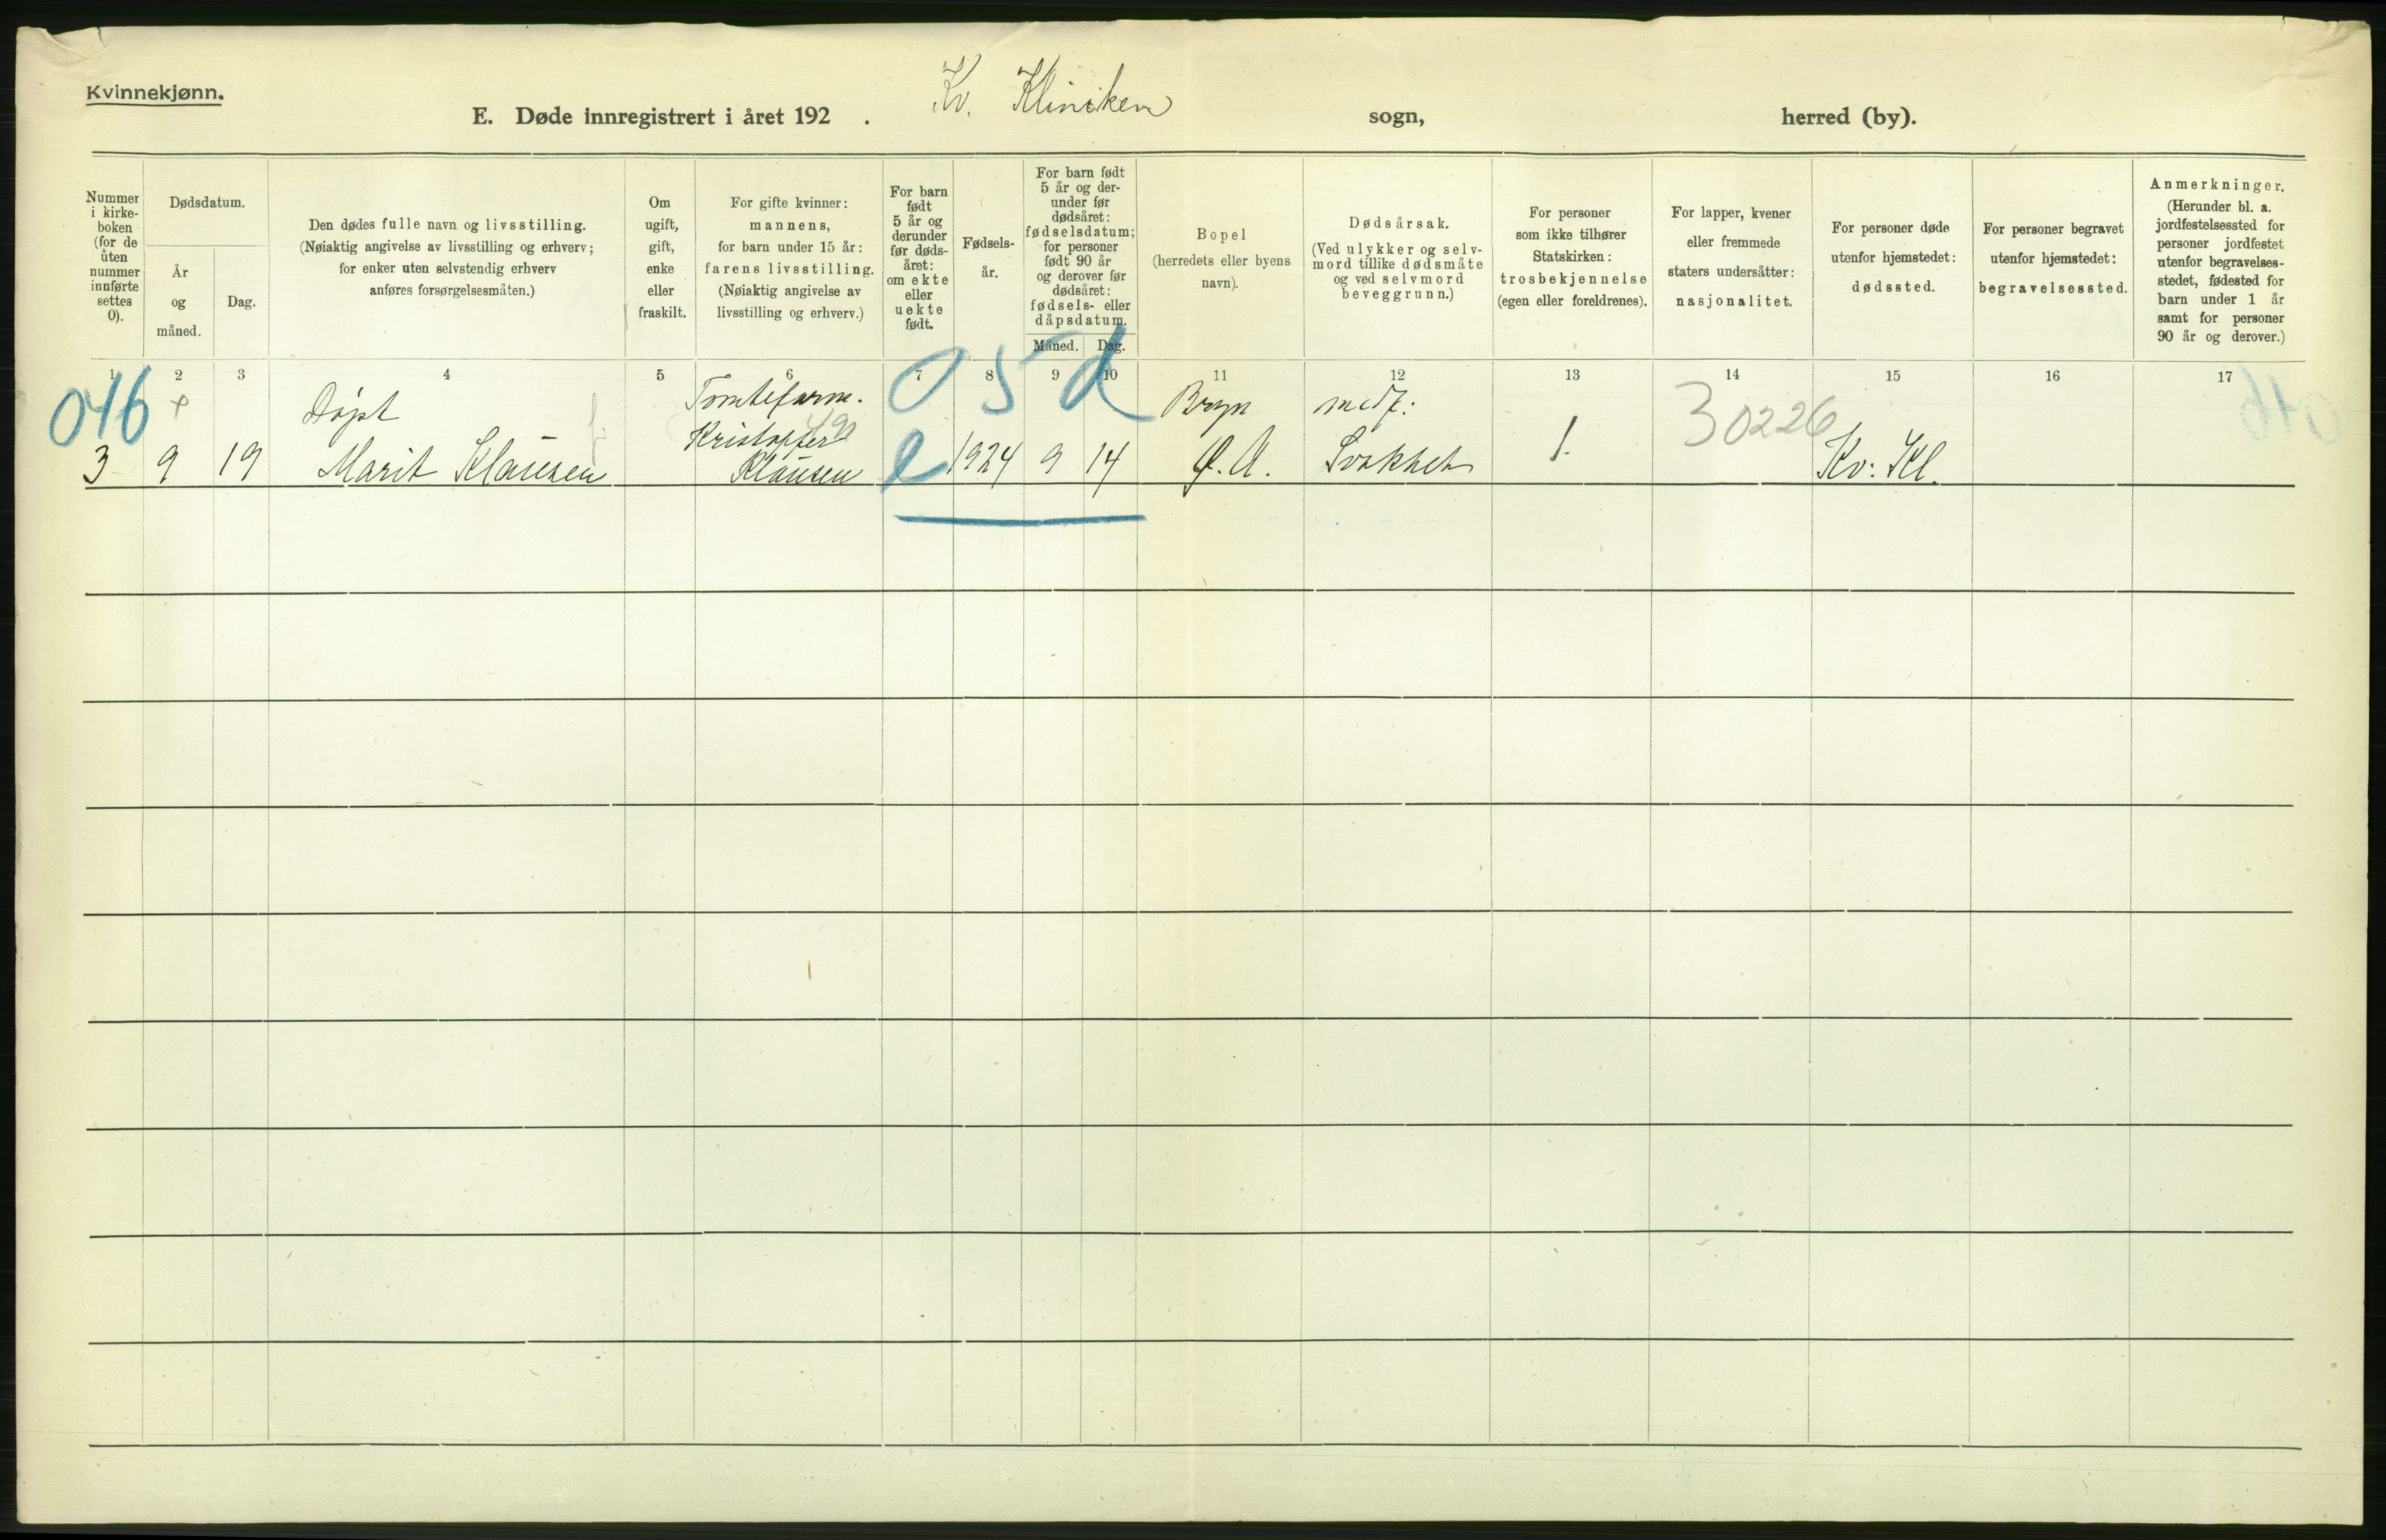 Kvinnekjønn.
E. Døde innregistrert i året 192 . Kv. Kliniken sogn, herred (by).
Nummer
i kirke-
boken
(for de
uten
nummer
innførte
settes
0).
Dødsdatum.
År
og
måned.
Dag.
Den dødes fulle navn og livsstilling.
(Nøiaktig angivelse av livsstilling og erhverv;
for enker uten selvstendig erhverv
anføres forsørgelsesmåten.)
Om
ugift,
gift,
enke
eller
fraskilt.
For gifte kvinner:
mannens,
for barn under 15 år:
farens livsstilling.
(Nøiaktig angivelse av
livsstilling og erhverv.)
For barn
født
5 år og
derunder
før døds-
året:
om ekte
eller
uekte
født.
Fødsels-
år.
For barn født
5 år og der-
under før
dødsåret:
fødselsdatum;
for personer
født 90 år
og derover før
dødsåret:
fødsels- eller
dåpsdatum.
Måned. Dag.
Bopel
(herredets eller byens
navn).
Dødsårsak.
(Ved ulykker og selv-
mord tillike dødsmåte
og ved selvmord
beveggrunn.)
For personer
som ikke tilhører
Statskirken:
trosbekjennelse
(egen eller foreldrenes).
For lapper, kvener
eller fremmede
staters undersåtter:
nasjonalitet.
For personer døde
utenfor hjemstedet:
dødssted.
For personer begravet
utenfor hjemstedet:
begravelsessted.
Anmerkninger.
(Herunder bl. a.
jordfestelsessted for
personer jordfestet
utenfor begravelses-
stedet, fødested for
barn under 1 år
samt for personer
90 år og derover.)
1 2 3 4 5 6 7 8 9 10 11 12 13 14 15 16 17
046 + Døpt 05d Bryn medf: 30226
Kristoffer 490
3 9 19 Marit Klausen Klausen e 1924 9 14 Ø.A. Svakhet 1. Kv: Kl.